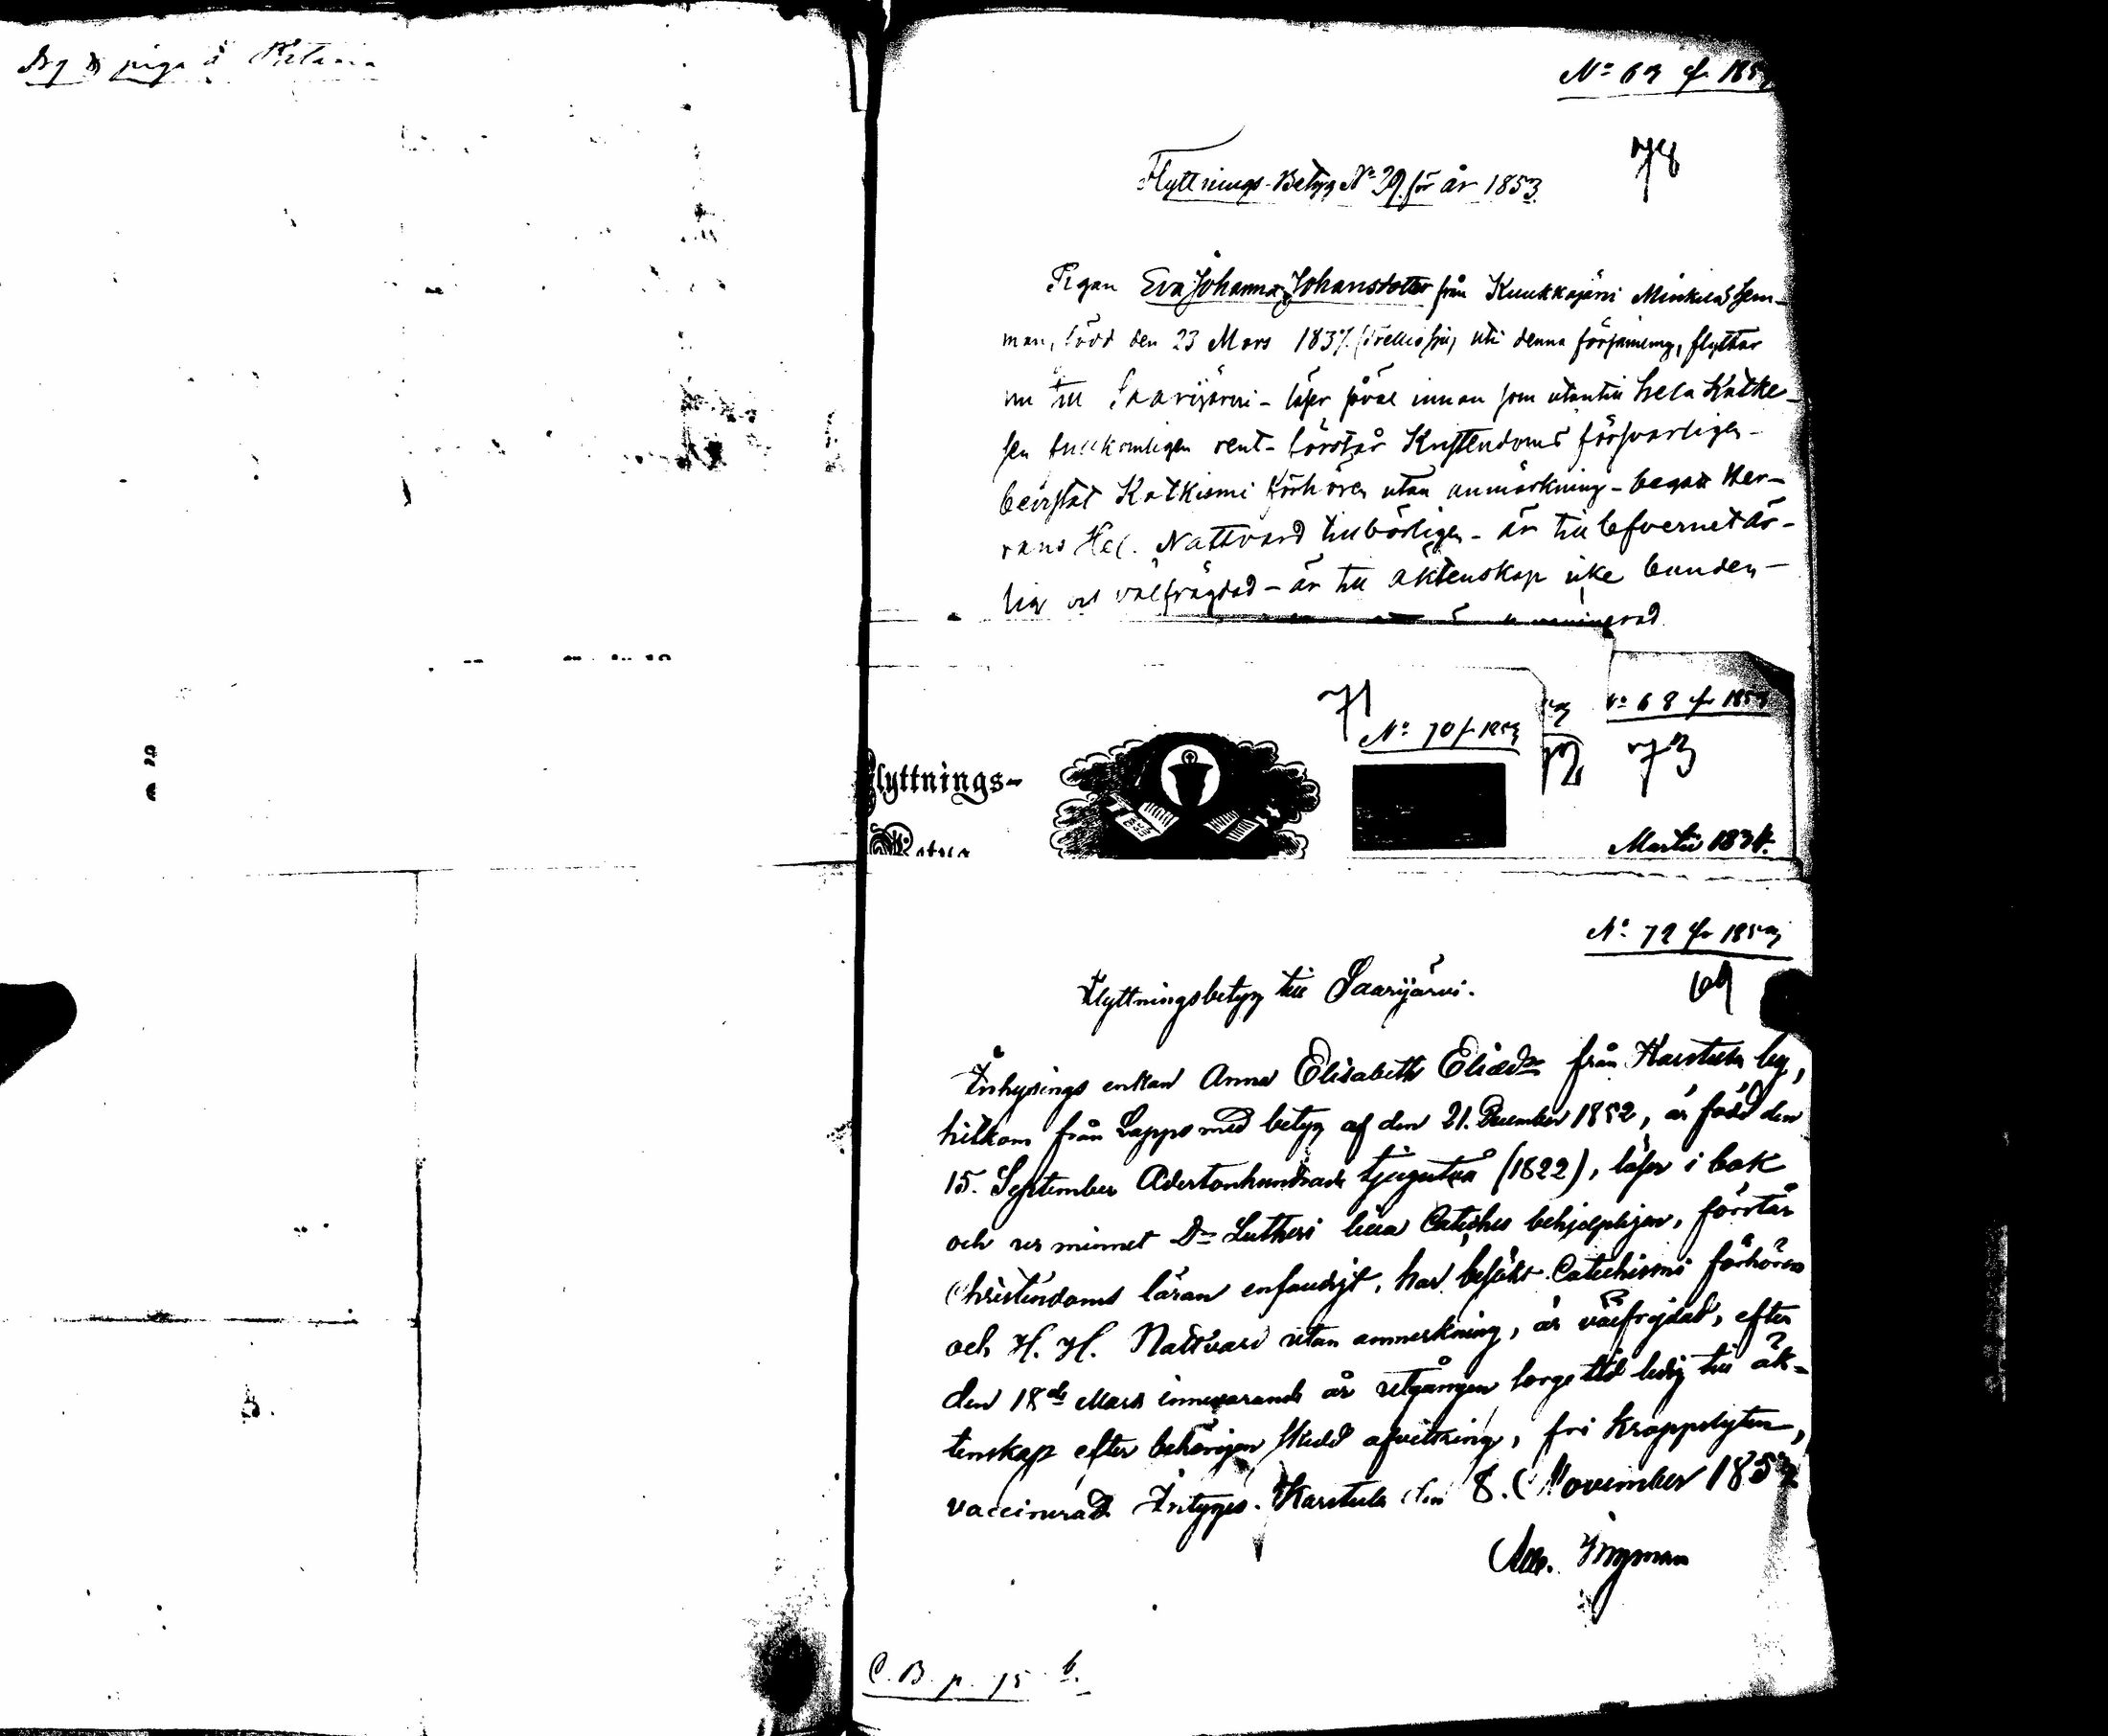 piga å
No 63 f. 1853
78
Flyttnings-Betyg No 29 för år 1853
Pigan Eva Johanna Johansdotter från Kuukkajärvi Minkilä Hem-
man, född den 23 Mars 1837 uti denna församling, flyttar
nu till Saarijärvi - läser såväl innan som utantill hela Katke-
sen fullkomligen rent - förstår Kristendomen försvarligen -
bevistat Katkismi förhören utan anmärkning - begått Her-
rans Hel. Nattvard tillbörligen - är till lefvernet är-
lig och välfrägdad - är till äktenskap icke bunden -
71
No 70 f 1853
No 68 f. 1853
73
Flyttnings-
Betyg
Martii 1834.
No 72 f. 1853
69
Flyttningsbetyg till Saarijärvi.
Inhysings enkan Anna Elisabeth Eliædr från Karstula by,
hitkom från Lappo med betyg af den 21. December 1852, är född den
15. September Adertonhundrade tjugutvå (1822), läser i bok
och ur minnet Dr Lutheri lilla Catechес behjelpligen, förstår
Christendoms läran enfaldigt, har besökt Catechismi förhören
och H. H. Nattvard utan anmerkning, är välfrejdad, efter
den 18de Mars innevarande år utgången sorge tid ledig till äk-
tenskap efter behörigen skedd afvittring, fri kroppslyten,
vaccinerad. Intygas. Karstula den 8. November 1853
Ingman
C. B. p. 15 b.